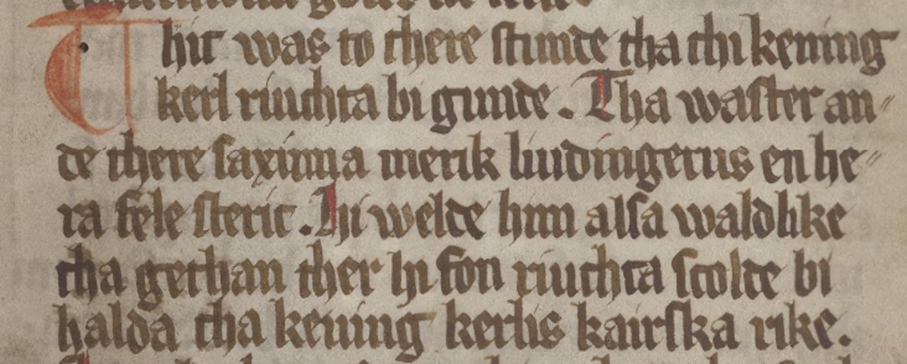 Thit was to there stunde tha thi kening
kerl riuchta bi gunde. Tha waster an⸗
de there saxinna merik liudingerus en he⸗
ra fele steric. Hi welde him alsa waldlike
tha gethan ther hi fon riuchta scolde bi
halda tha kening kerlis kairska rike.